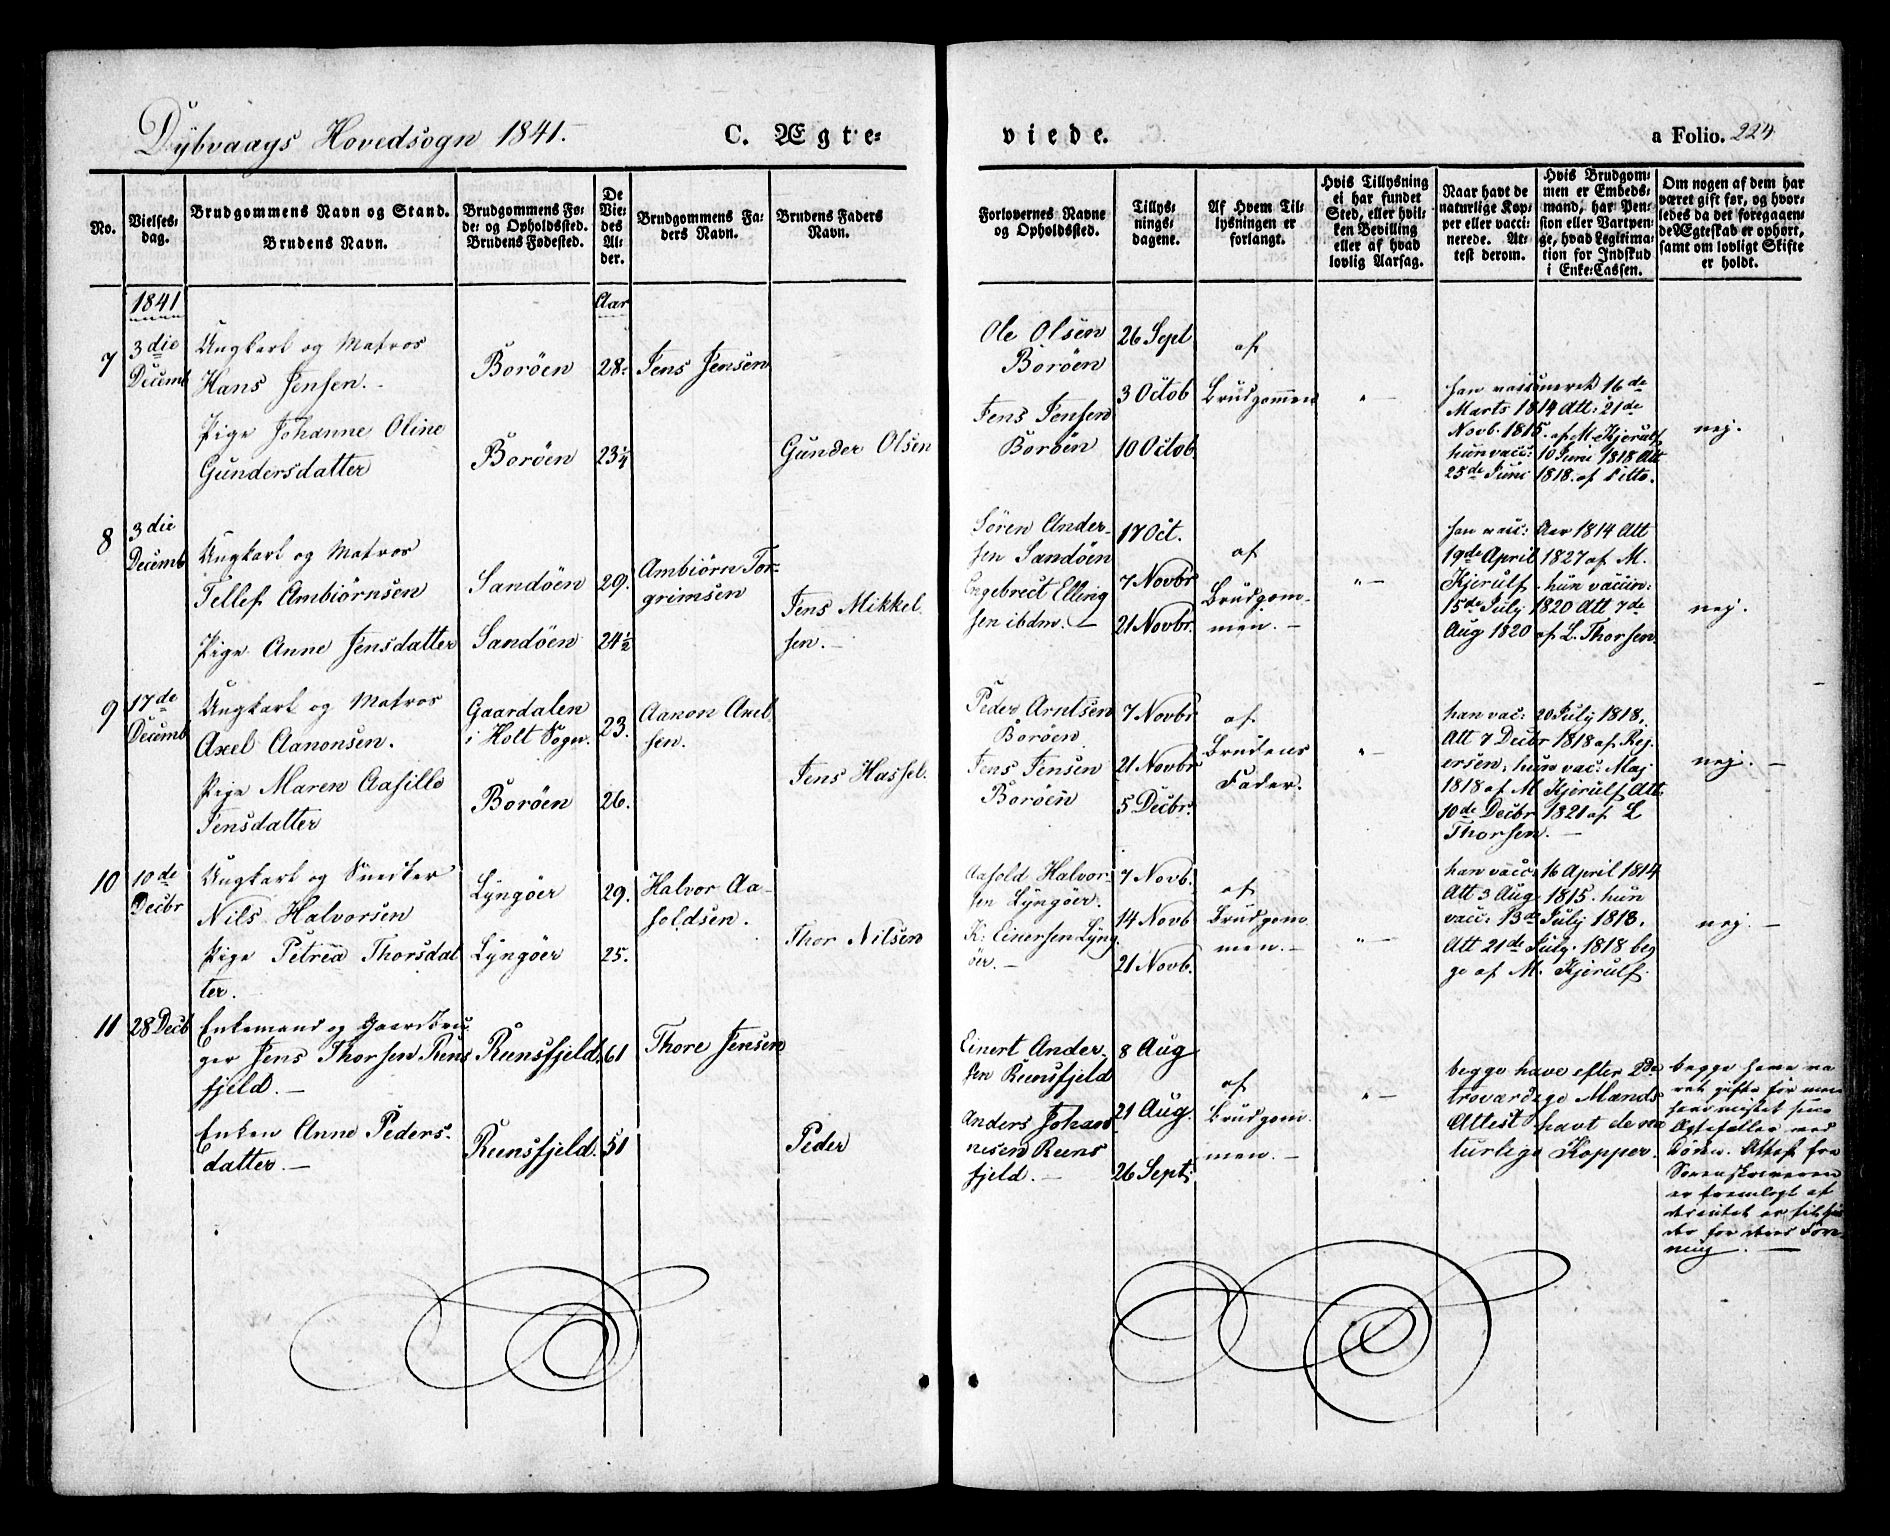 Dybvaags Hovedsogn 1841. C. Ægte-
viede. a Folio. 224
No.
Vielses-
dag.
Brudgommens Navn og Stand.
Brudens Navn.
Brudgommens Fø-
de- og Opholdssted.
Brudens Fødested.
De
Vie-
des
Al-
der.
Brudgommens Fa-
ders Navn.
Brudens Faders
Navn.
Forlovernes Navne
og Opholdssted.
Tillys-
nings-
dagene.
Af Hvem Til-
lysningen er
forlangt.
Hvis Tillysning
ei har fundet
Sted, eller hvil-
ken Bevilling
eller af hvad
lovlig Aarsag.
Naar havt de
naturlige Kop-
per eller vacci-
nerede. At-
test derom.
Hvis Brudgom-
men er Embeds-
mand, har Pen-
sion eller Vartpen-
ge, hvad Legitima-
tion for Indskud
i Enke-Cassen.
Om nogen af dem har
været gift før, og hvor-
ledes da det foregaaen-
de Ægteskab er ophørt,
samt om lovligt Skifte
er holdt.
1841
Aar
7
3die
Decemb
Ungkarl og Matros
Hans Jensen.
Pige Johanne Oline
Gundersdatter
Borøen
Borøen
28.
23¼
Jens Jensen
Gunder Olsen
Ole Olsen
Borøen
Jens Jensen
Borøen
26 Sept
3 Octob
10 Octob
af
Brudgommen
" —
han vaccineret 16de
Marts 1814 Att: 21de
Novb. 1815. af M. Kjerulf
hun vacc: 10 Juni 1818 Att
25de Juni 1818. af Ditto.
nej.
8
3die
Decemb
Ungkarl og Matros
Tellef Ambiørnsen
Pige Anne Jensdatter
Sandøen
Sandøen
29.
24½
Ambiørn Tor-
grimsen
Jens Mikkel-
sen.
Søren Ander-
sen Sandøen
Engebrect Elling
sen ibdm.
17 Oct.
7 Novbr
21 Novbr.
af
Brudgom-
men.
" —
han vacc: Aar 1814 Att
19de April 1827 af M.
Kjerulf. hun vaccin:
15de July 1820 Att 7de
Aug 1820 af L. Thorsen.
nej.
9
17de
Decemb
Ungkarl og Matros
Axel Aanonsen.
Pige Maren Aasille
Jensdatter
Gaardalen
i Holt Sogn.
Borøen
23.
26.
Aanon Axel
sen.
Jens Hassel.
Peder Arntsen
Borøen
Jens Jensen
Borøen
7 Novbr
21 Novbr
5 Decbr.
af
Brudens
Fader.
" —
han vac: 20 July 1818,
Att 7 Decbr 1818 af Rej-
ersen, hun vac: Maj
1818 af M Kjerulf Att.
10de Decbr 1821 af L
Thorsen.
nej.
10
10de
Decbr
Ungkarl og Snedker
Nils Halvorsen
Pige Petrea Thorsdat
ter.
Lyngøer
Lyngøer
29.
25.
Halvor Aa-
soldsen.
Thor Nilsen
Aasold Halvor-
sen Lyngøer.
K: Einersen Lyng
øer.
7 Novb.
14 Novb
21 Novb.
af
Brudgom
men.
" —
han vacc: 16 April 1814
Att 3 Aug 1815. hun
vacc: 13de July 1818,
Att 21de July 1818 beg
ge af M. Kjerulf.
nej.
11
28 Decb
Enkemand og Gaardbru
ger Jens Thorsen Runs
fjeld.
Enken Anne Peders-
datter.
Runsfjeld.
Runsfjeld.
61
51
Thore Jensen
Peder
Einert Ander-
sen Runsfjeld
Anders Johan
nesen Runs
fjeld.
8 Aug
21 Aug.
26 Sept.
af
Brudgom
men.
" —
begge have efter 2de
troværdige Mænds
Attest havt de na
turlige Kopper.
begge have væ
ret gifte før men
have mistet sine
Ægtefæller ved
Døden. Attest fra
Sorenskriveren
er fremlagt at